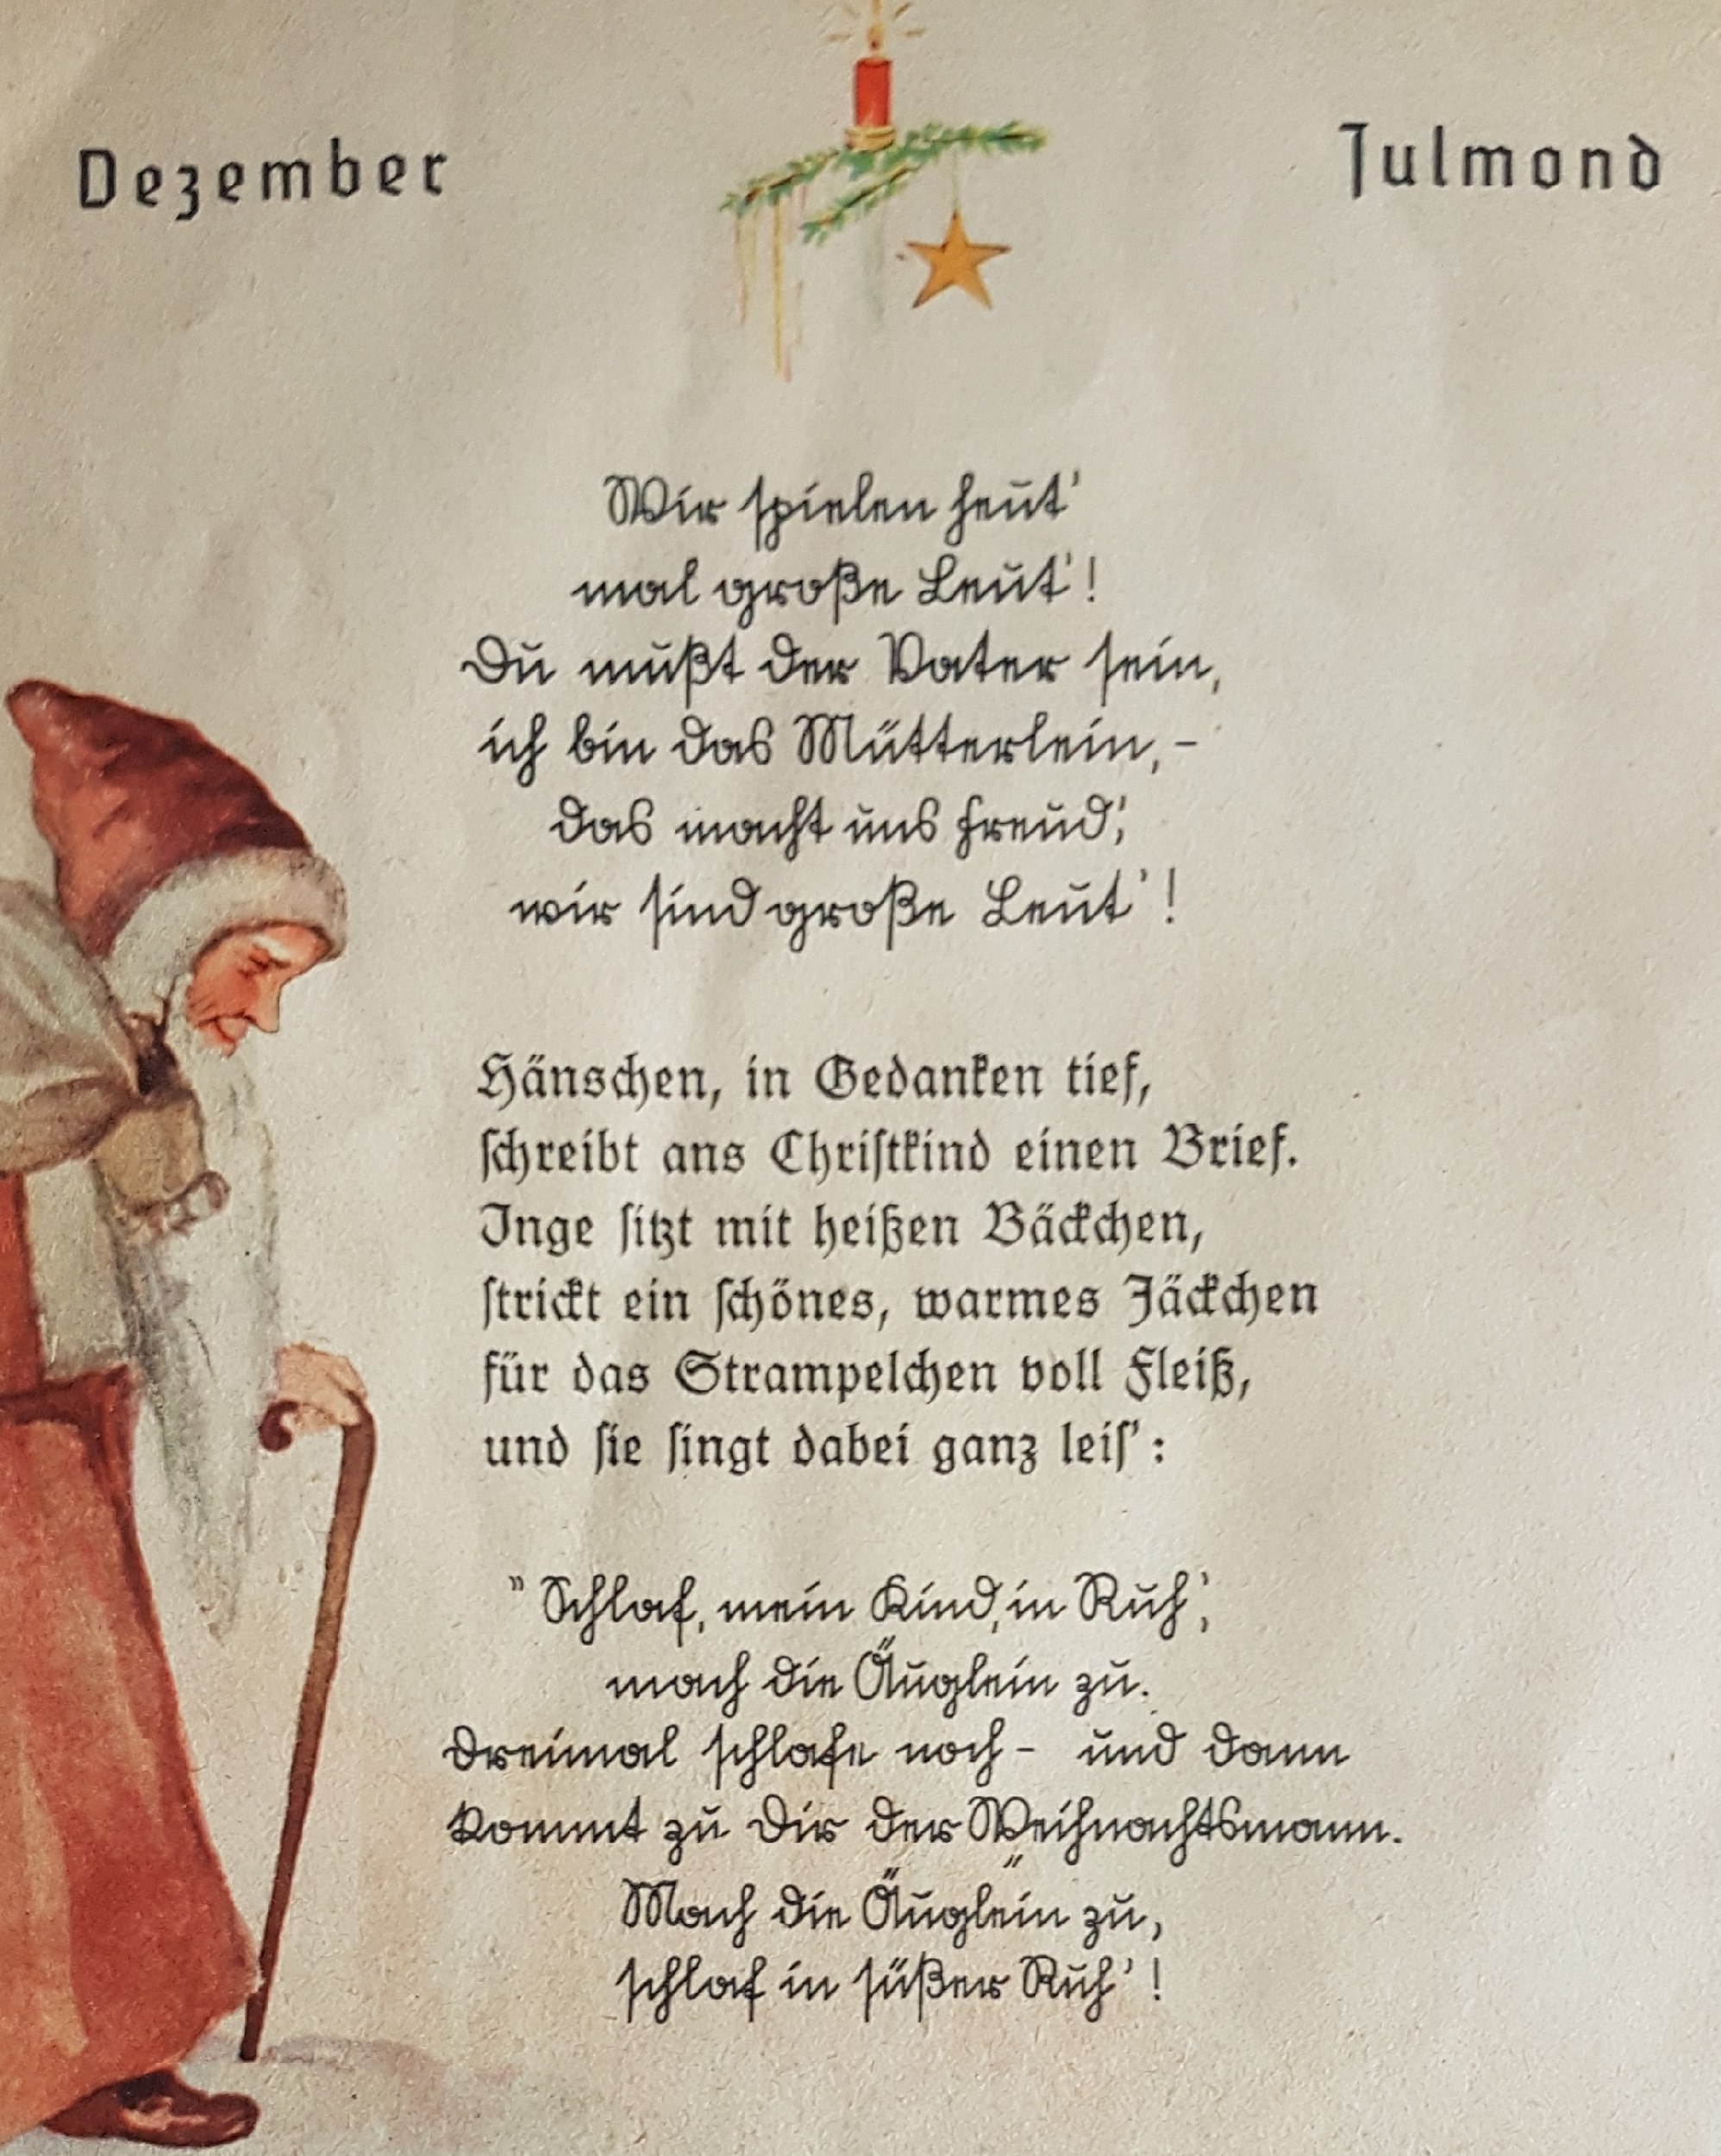 Dezember
Julmond
Wir spielen heut'
mal große Leut'!
Du mußt der Vater sein,
ich bin das Mütterlein, –
das macht uns Freud',
wir sind große Leut'!
Hänschen, in Gedanken tief,
schreibt ans Christkind einen Brief.
Inge sitzt mit heißen Bäckchen,
strickt ein schönes, warmes Jäckchen
für das Strampelchen voll Fleiß,
und sie singt dabei ganz leis':
"Schlaf, mein Kind, in Ruh',
mach die Äuglein zu.
Dreimal schlafe noch – und dann
kommt zu Dir der Weihnachtsmann."
Mach die Äuglein zu,
schlaf in süßer Ruh'!